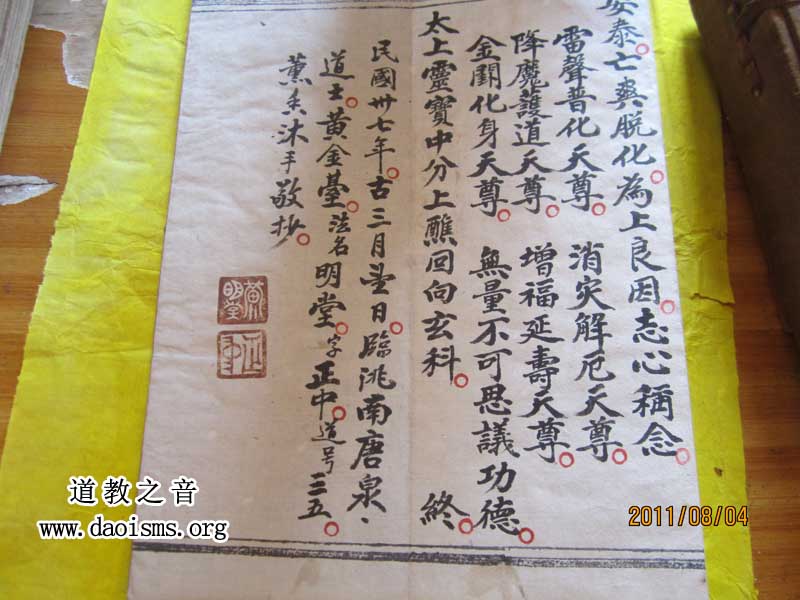 安泰。亡爽脱化。為上良因。志心稱念。
雷聲普化天尊。 消灾解厄天尊。
降魔護道天尊。 增福延壽天尊。
金闕化身天尊。 無量不可思議功德。
太上靈寶中分上醮回向玄科。 終。
民國卅七年。古三月望日。臨洮南唐泉、
道士。黄金臺。法名明堂。字正中。道号三五。
薰香沐手敬抄。
黄明堂
正中
道教之音
www.daoisms.org
2011/08/04